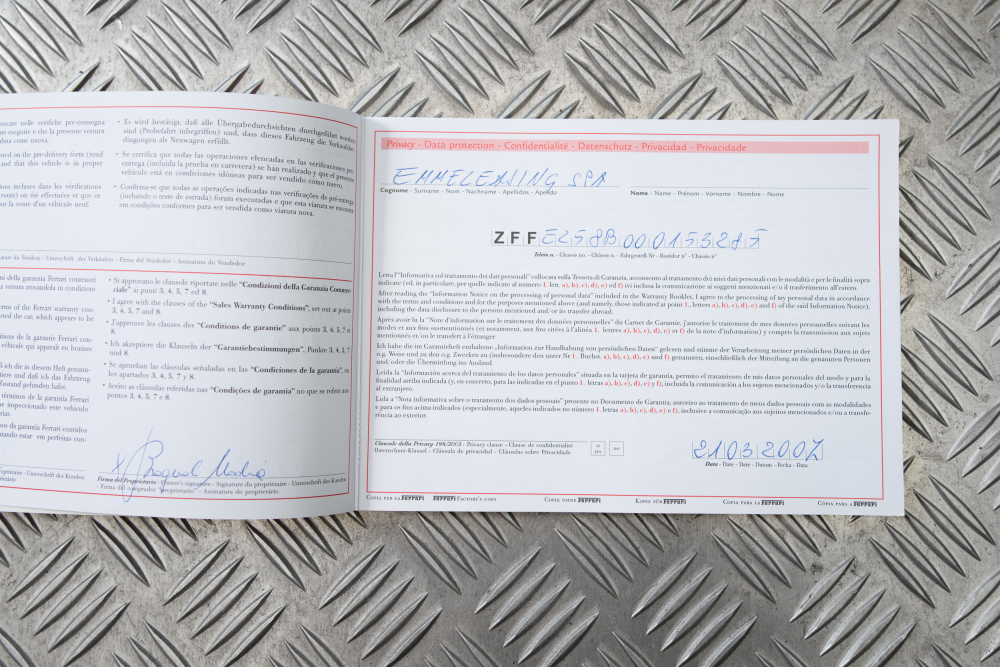 encate nelle verifiche pre-consegna
te eseguite e che la presente vettura
duta come nuova.
ated on the pre-delivery form (road
and that this vehicle is in proper
tions incluses dans les vérifications
route) ont été effectuées et que ce
ur la vente d'un véhicule neuf.
• Es wird bestätigt, daß alle Übergabedurchsichten durchgeführt worden
sind (Probefahrt inbegriffen) und, dass dieses Fahrzeug die Verkaufsbe-
dingungen als Neuwagen erfüllt.
• Se certifica que todas las operaciones elencadas en las verificaciones pre-
entrega (incluida la prueba en carretera) se han realizado y que el presente
vehículo está en condiciones idóneas para ser vendido como nuevo.
• Confirma-se que todas as operações indicadas nas verificações de pré-entrega
(incluindo o teste de estrada) foram executadas e que esta viatura se encontra
em condições conformes para ser vendida como viatura nova.
Unterschrift des Verkäufers - Firma del Vendedor - Assinatura do Vendedor
ni della garanzia Ferrari contenuti
a vettura trovandola in condizioni
ms of the Ferrari warranty con-
ted the car, which appears to be
ions de la garantie Ferrari con-
véhicule qui apparaît en bonnes
d ich die in diesem Heft genann-
tiere und daß ich das Fahrzeug
Zustand gefunden habe.
términos de la garantía Ferrari
e inspeccionado este vehículo
rias.
os da garantia Ferrari contidos
tando estar em perfeitas con-
• Si approvano le clausole riportate nelle "Condizioni della Garanzia Comme-
ciale" ai punti 3, 4, 5, 7 ed 8.
• I agree with the clauses of the "Sales Warranty Conditions", set out at points
3, 4, 5, 7 and 8.
• J'approuve les clauses des "Conditions de garantie" aux points 3, 4, 5, 7 et
8.
• Ich akzeptiere die Klauseln der "Garantiebestimmungen", Punkte 3, 4, 5, 7
und 8.
• Se aprueban las cláusulas señaladas en las "Condiciones de la garantía", en
los apartados 3, 4, 5, 7 y 8.
• Aceito as cláusulas referidas nas "Condições de garantia" no que se refere aos
pontos 3, 4, 5, 7 e 8.
Firma del Proprietario - Owner's signature - Signature du propriétaire - Unterschrift des Kunden
- Firma del comprador "propietario" - Assinatura do proprietário
Privacy - Data protection - Confidentialité - Datenschutz - Privacidad - Privacidade
EMMELEASING SPA
Cognome - Surname - Nom - Nachname - Apellidos - Apelido
Nome - Name - Prénom - Vorname - Nombre - Nome
ZFF
Telaio n. - Chassis no. - Châssis n. - Fahrgestell-Nr - Bastidor n° - Chassis n°
Letta l'"Informativa sul trattamento dei dati personali" collocata sulla Tessera di Garanzia, acconsento al trattamento dei miei dati personali con le modalità e per le finalità sopra
indicate (ed, in particolare, per quelle indicate al numero 1. lett. a), b), c), d), e) ed f) ivi inclusa la comunicazione ai soggetti menzionati e/o il trasferimento all'estero.
After reading the "Information Notice on the processing of personal data" included in the Warranty Booklet, I agree to the processing of my personal data in accordance
with the terms and conditions and for the purposes mentioned above (and namely, those indicated at point 1., letters a), b), c), d), e) and f) of the said Information Notice),
including the data disclosure to the persons mentioned and/or its transfer abroad.
Après avoir lu la "Note d'information sur le traitement des données personnelles" du Carnet de Garantie, j'autorise le traitement de mes données personnelles suivant les
modes et aux fins susmentionnés (et notamment, aux fins citées à l'alinéa 1. lettres a), b), c), d), e) et f) de la note d'information) y compris la transmission aux sujets
mentionnés et/ou le transfert à l'étranger
Ich habe die im Garantieheft enthaltene „Information zur Handhabung von persönlichen Daten" gelesen und stimme der Verarbeitung meiner persönlichen Daten in der
o.g. Weise und zu den o.g. Zwecken zu (insbesondere den unter Nr 1. Buchst. a), b), c), d), e) und f) genannten, einschließlich der Mitteilung an die genannten Personen
und/ oder die Übermittlung ins Ausland.
Leída la "Información acerca del tratamiento de los datos personales" situada en la tarjeta de garantía, permito el tratamiento de mis datos personales del modo y para la
finalidad arriba indicada (y, en concreto, para las indicadas en el punto 1. letras a), b), c), d), e) y f), incluida la comunicación a los sujetos mencionados y/o la transferencia
al extranjero.
Lida a "Nota informativa sobre o tratamento dos dados pessoais" presente no Documento de Garantia, autorizo ao tratamento de meus dados pessoais com as modalidades
e para os fins acima indicados (especialmente, aqueles indicados no número 1. letras a), b), c), d), e) e f), inclusive a comunicação aos sujeitos mencionados e/ou a transfe-
rência ao exterior.
Clausole della Privacy 196/2003 - Privacy clause - Clause de confidentialité
Datenschutz-Klausel - Cláusula de privacidad - Cláusulas sobre Privacidade
si
yes
no
21032007
Data - Date - Date - Datum - Fecha - Data
Copia per la Ferrari
Ferrari Factory's copy
Copie usine Ferrari
Kopie für Ferrari
Copia para la Ferrari
Cópia para a Ferrari